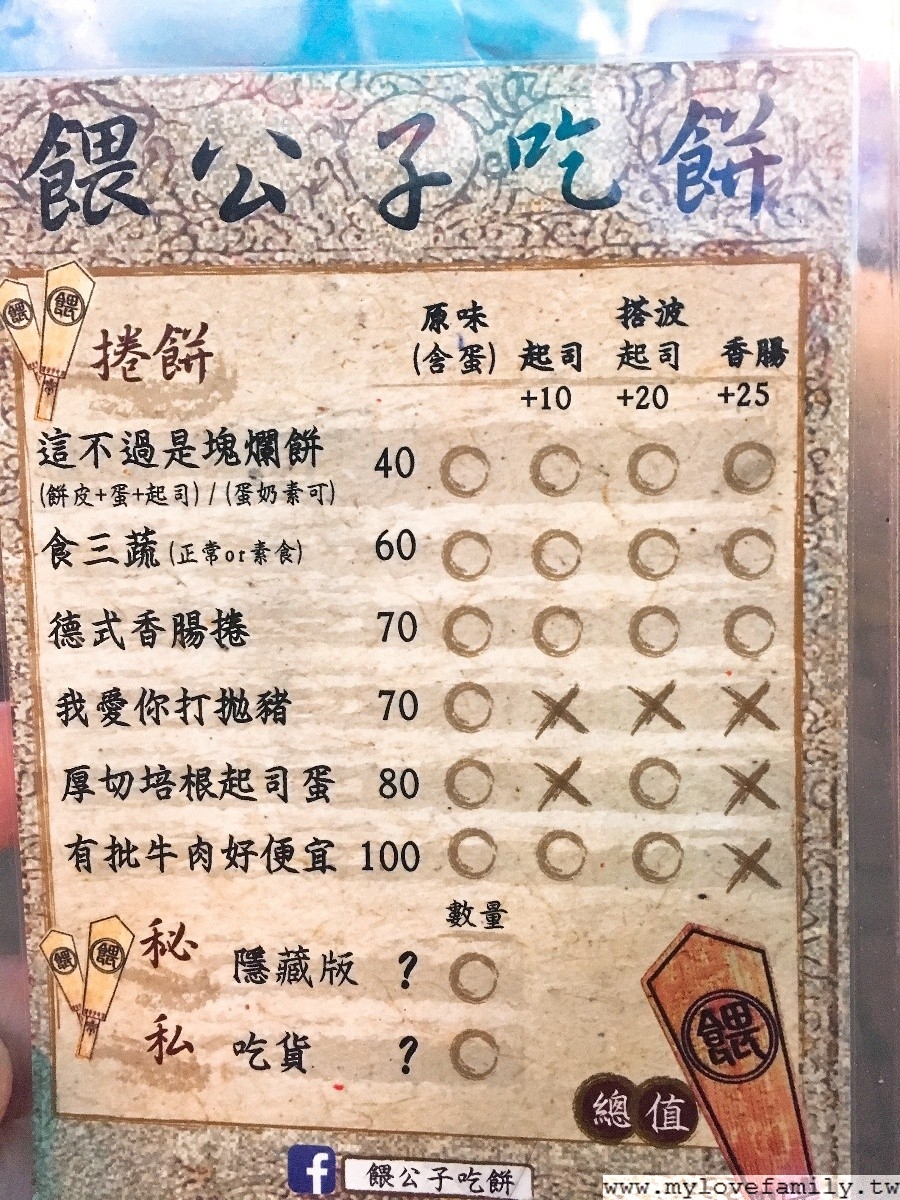 餵公子吃餅
餵 餵
捲餅
原味 搭波
(含蛋) 起司 起司 香腸
+10 +20 +25
這不過是塊爛餅 40
(餅皮+蛋+起司)/(蛋奶素可)
食三蔬(正常or素食) 60
德式香腸捲 70
我愛你打拋豬 70
厚切培根起司蛋 80
有批牛肉好便宜 100
數量
餵 餵
秘 隱藏版 ?
私 吃貨 ?
餵
總值
f 餵公子吃餅
www.mylovefamily.tw